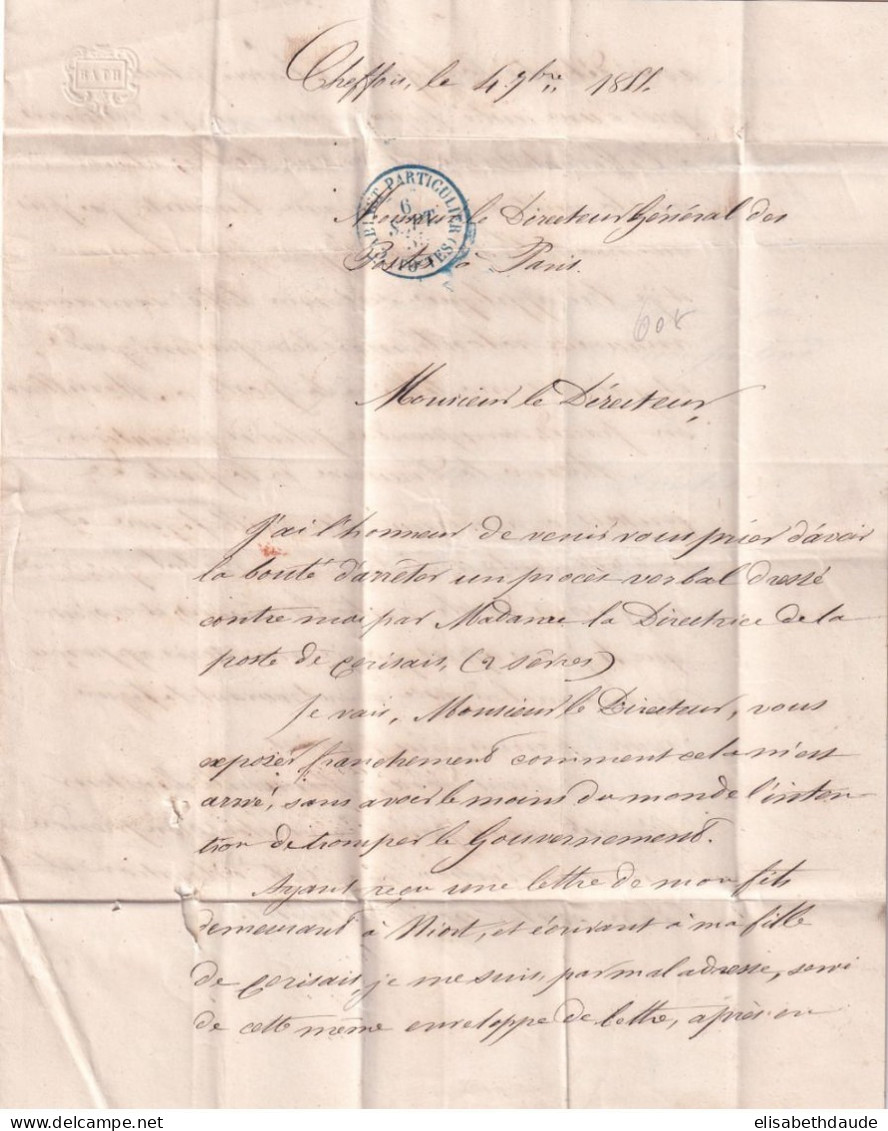 BATH
Cheffois, le 4 7bre 1855.
CABINET PARTICULIER (POSTES)
6
SEPT
Monsieur le Directeur Général des
Postes à Paris.
60x
Monsieur le Directeur,
J'ai l'honneur de venir vous prier d'avoir
la bonté d'arrêter un procès verbal dressé
contre moi par Madame la Directrice de la
poste de Cerisais, (2 sèvres)
Je vais, Monsieur le Directeur, vous
exposer franchement comment cela m'est
arrivé, sans avoir le moins du monde l'inten-
tion de tromper le Gouvernement.
Ayant reçu une lettre de mon fils
demeurant à Niort, et écrivant à ma fille
de Cerisais, je me suis, par maladresse, servi
de cette même enveloppe de lettre, après en
elisabethdaude